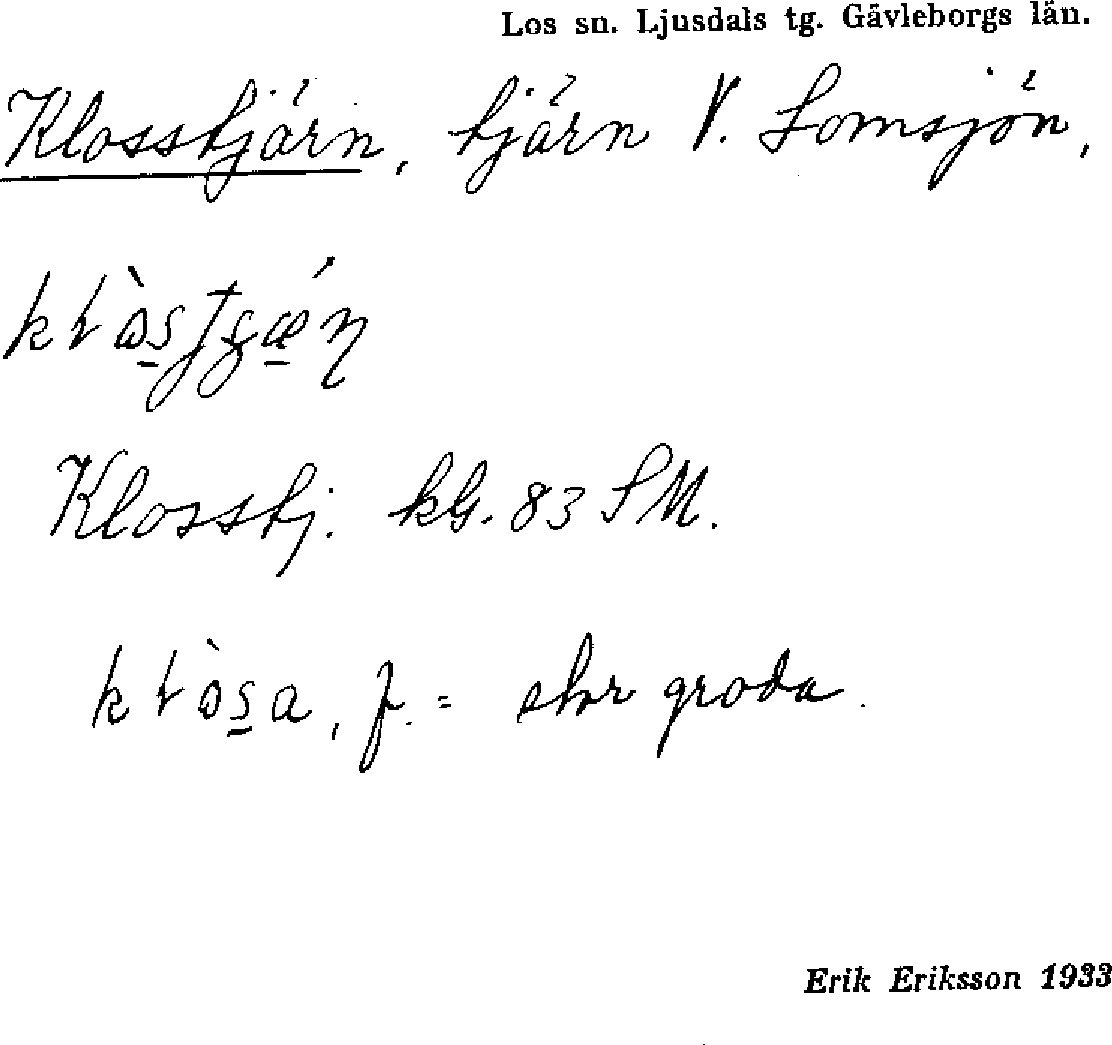 Los sn. Ljusdals tg. Gävleborgs län.
Klosstjärn, tjärn V. Lomsjön,
Klosstj. kG. 83 SM.
f. = stor groda.
Erik Eriksson 1933